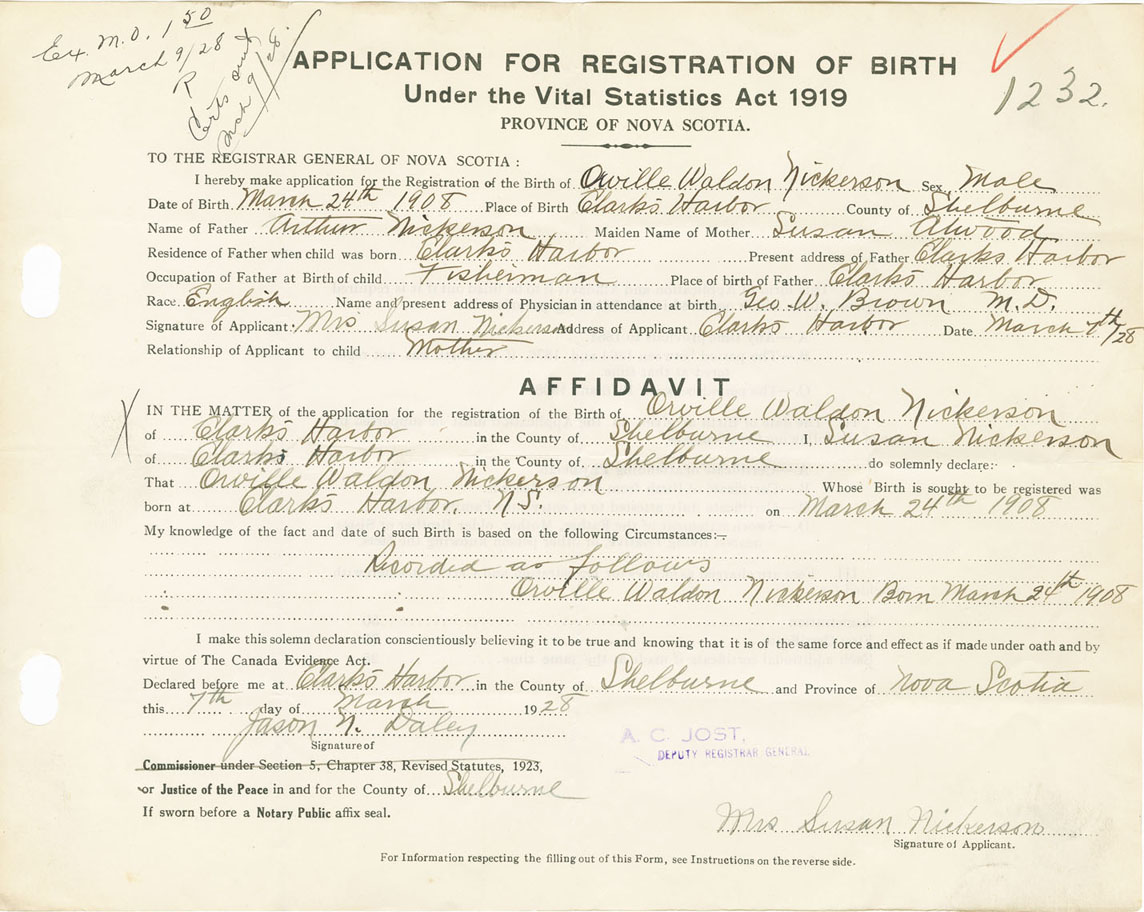 Ex. M.O. 1 50
March 9/28
R
Certs sent
Mch 9/28.
1232.
APPLICATION FOR REGISTRATION OF BIRTH
Under the Vital Statistics Act 1919
PROVINCE OF NOVA SCOTIA.
TO THE REGISTRAR GENERAL OF NOVA SCOTIA :
I hereby make application for the Registration of the Birth of Orville Waldon Nickerson Sex Male
Date of Birth March 24th 1908 Place of Birth Clark's Harbor County of Shelburne
Name of Father Arthur Nickerson Maiden Name of Mother Susan Atwood
Residence of Father when child was born Clark's Harbor Present address of Father Clark's Harbor
Occupation of Father at Birth of child Fisherman Place of birth of Father Clark's Harbor
Race English Name and present address of Physician in attendance at birth Geo. W. Brown M.D.
Signature of Applicant Mrs Susan Nickerson Address of Applicant Clark's Harbor Date March 7th/28
Relationship of Applicant to child Mother
AFFIDAVIT
X
IN THE MATTER of the application for the registration of the Birth of Orville Waldon Nickerson
of Clark's Harbor in the County of Shelburne I, Susan Nickerson
of Clark's Harbor in the County of Shelburne do solemnly declare:
That Orville Waldon Nickerson Whose Birth is sought to be registered was
born at Clark's Harbor. N.S. on March 24th 1908
My knowledge of the fact and date of such Birth is based on the following Circumstances:—
Recorded as follows
Orville Waldon Nickerson Born March 24th 1908
I make this solemn declaration conscientiously believing it to be true and knowing that it is of the same force and effect as if made under oath and by
virtue of The Canada Evidence Act.
Declared before me at Clark's Harbor in the County of Shelburne and Province of Nova Scotia
this 7th day of March 1928
Jason N. Daley
Signature of
A. C. JOST,
DEPUTY REGISTRAR GENERAL
Commissioner under Section 5, Chapter 38, Revised Statutes, 1923,
or Justice of the Peace in and for the County of Shelburne
If sworn before a Notary Public affix seal.
Mrs Susan Nickerson
Signature of Applicant.
For Information respecting the filling out of this Form, see Instructions on the reverse side.